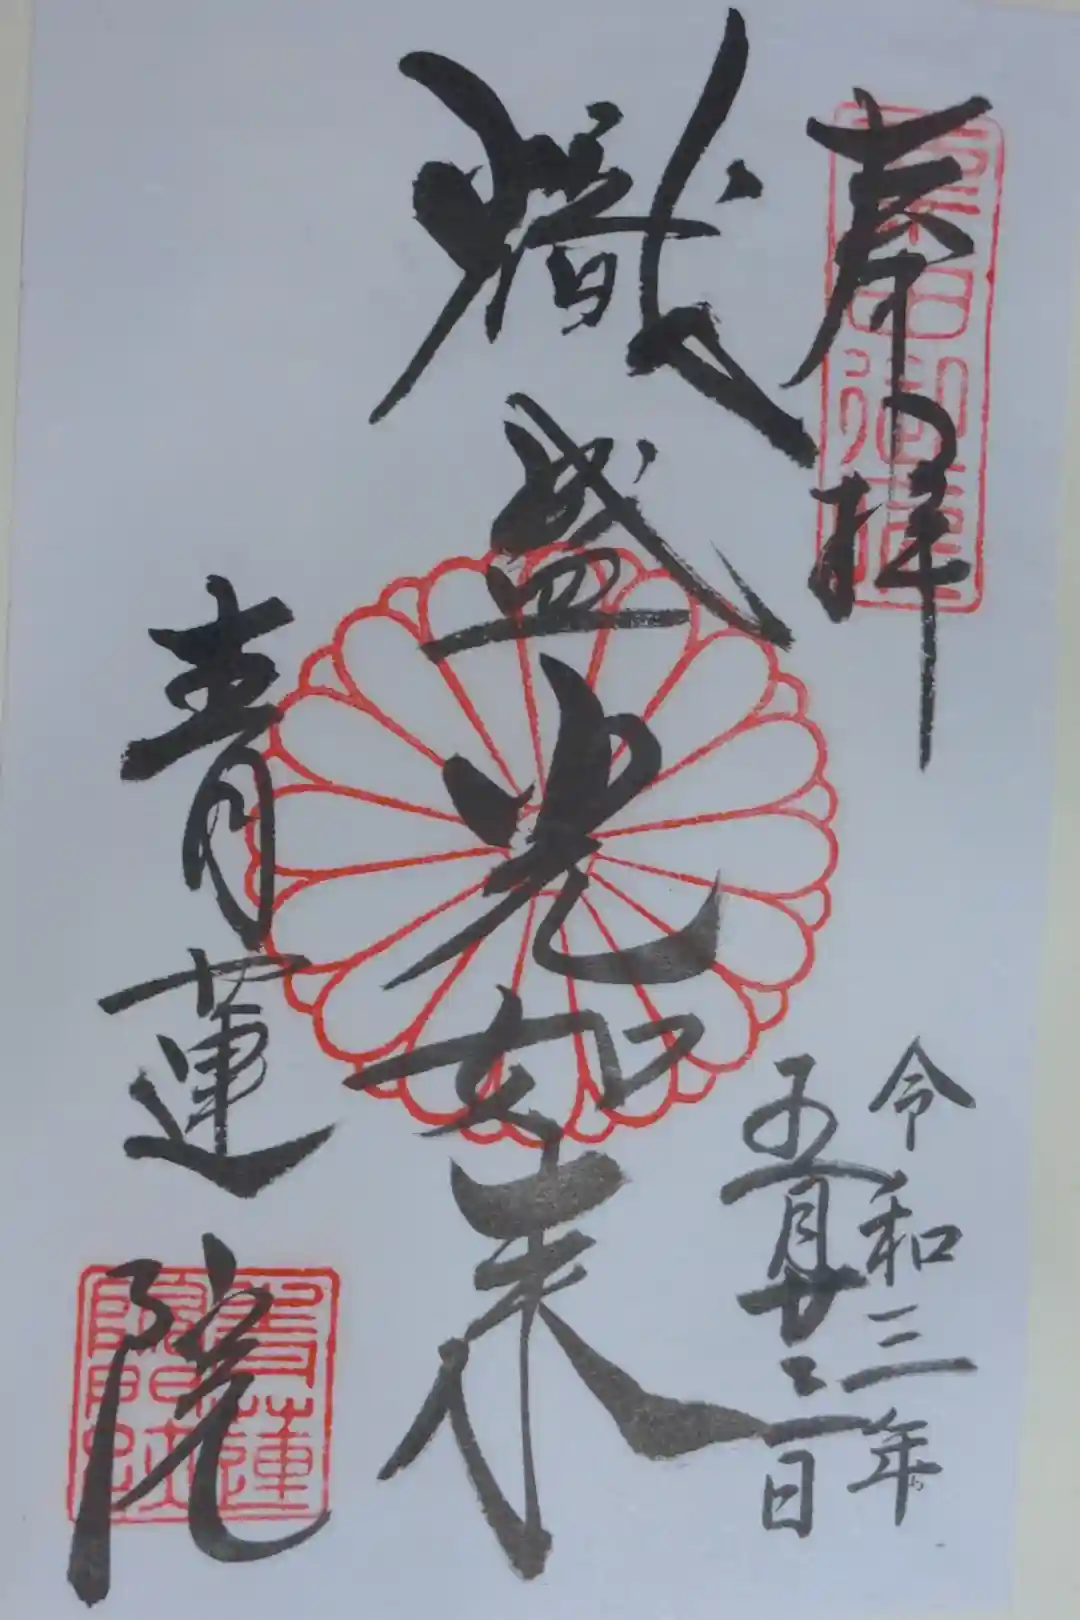 奉拝
熾盛光如来
青蓮院
令和三年
五月廿三日
青蓮院門跡